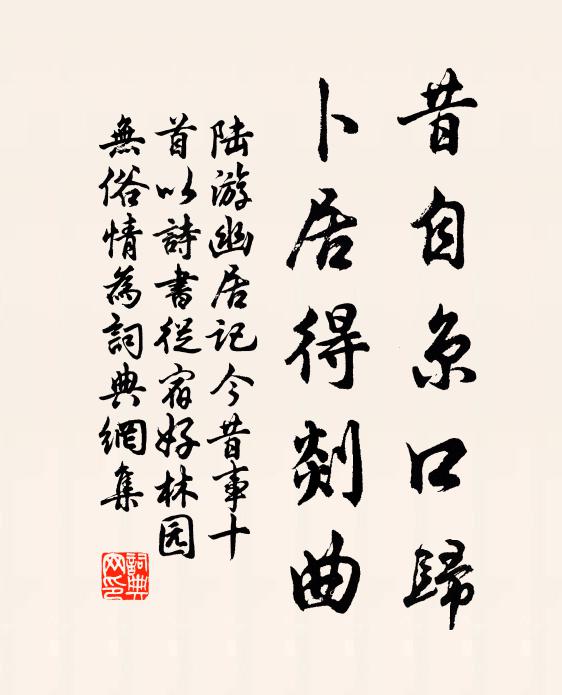 昔自京口歸
卜居得剡曲
陆游幽居记今昔事十
首以詩書從宿好林园
無俗情為詞典網集
詞典網印